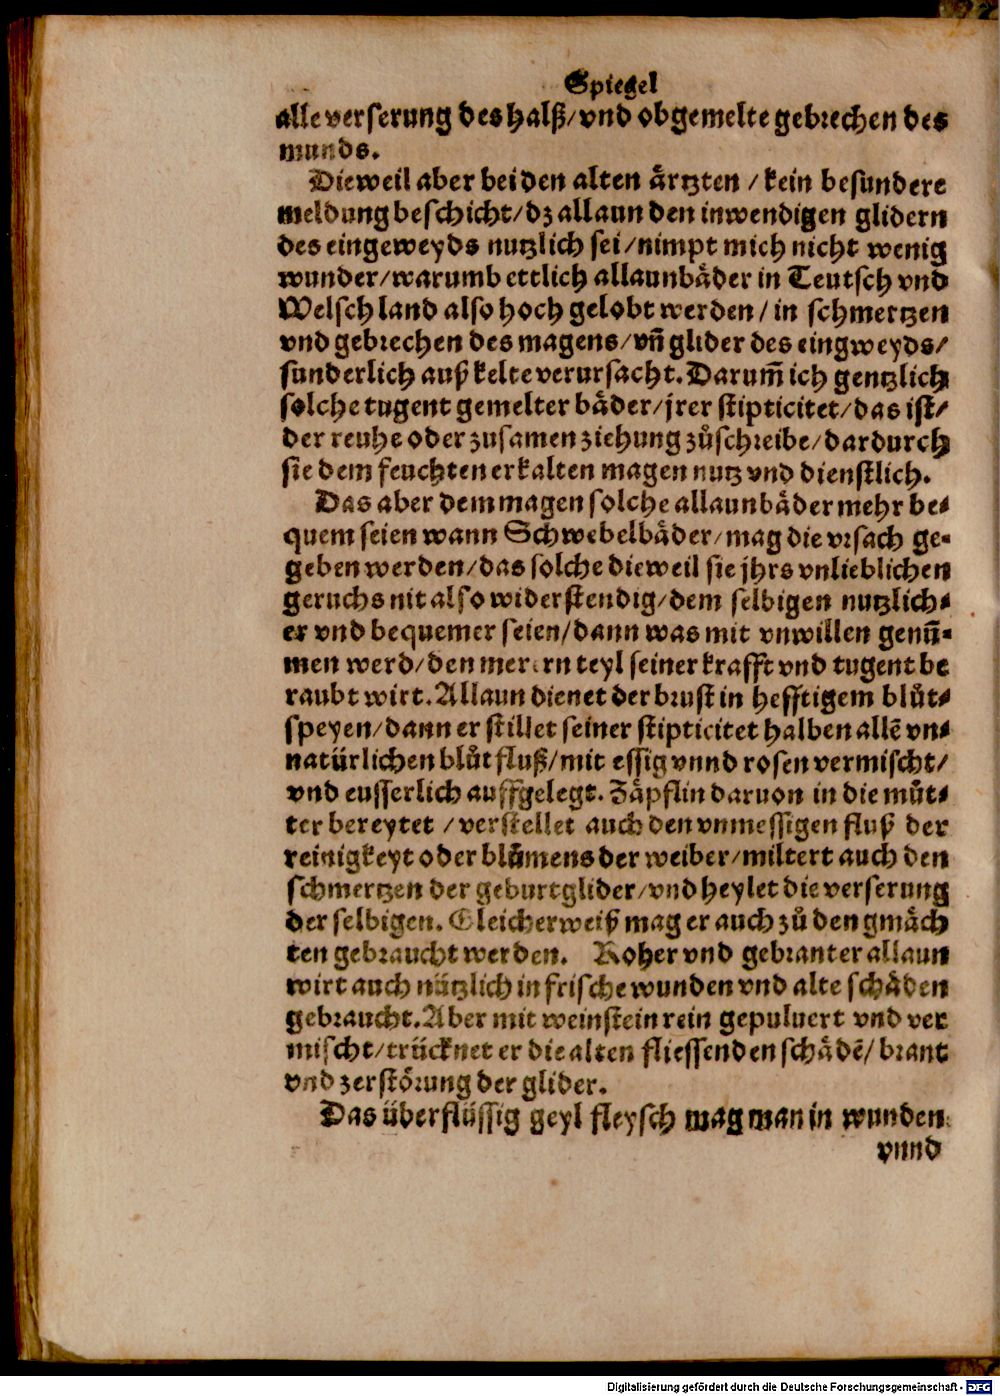 Spiegel
alle verserung des halß/vnd obgemelte gebrechen des
munds.
Dieweil aber bei den alten aͤrtzten/kein besundere
meldung beschicht/dz allaun den inwendigen glidern
des eingeweyds nutzlich sei/nimpt mich nicht wenig
wunder/warumb ettlich allaunbaͤder in Teutsch vnd
Welsch land also hoch gelobt werden/in schmertzen
vnd gebrechen des magens/vñ glider des eingweyds/
sunderlich auß kelte verursacht. Darum̃ ich gentzlich
solche tugent gemelter baͤder/jrer stipticitet/das ist/
der reuhe oder zusamen ziehung zůschreibe/dardurch
sie dem feuchten erkalten magen nutz vnd dienstlich.
Das aber dem magen solche allaunbaͤder mehr be-
quem seien wann Schwebelbaͤder/mag die vrsach ge-
geben werden/das solche dieweil sie jhrs vnlieblichen
geruchs nit also widerstendig/dem selbigen nutzlich-
er vnd bequemer seien/dann was mit vnwillen genũ-
men werd/den merern teyl seiner krafft vnd tugent be
raubt wirt. Allaun dienet der brust in hefftigem blůt-
speyen/dann er stillet seiner stipticitet halben allẽ vn-
natürlichen blůtfluß/mit essig vnnd rosen vermischt/
vnd eusserlich auffgelegt. Zaͤpflin daruon in die můt-
ter bereytet/verstellet auch den vnmessigen fluß der
reinigkeyt oder blůmens der weiber/miltert auch den
schmertzen der geburtglider/vnd heylet die verserung
der selbigen. Gleicherweiß mag er auch zů den gmaͤch
ten gebraucht werden. Roher vnd gebranter allaun
wirt auch nützlich in frische wunden vnd alte schaͤden
gebraucht. Aber mit weinstein rein gepuluert vnd ver
mischt/trücknet er die alten fliessenden schaͤdẽ/brant
vnd zerstörung der glider.
Das überflüssig geyl fleysch mag man in wunden
vnnd
Digitalisierung gefördert durch die Deutsche Forschungsgemeinschaft - DFG